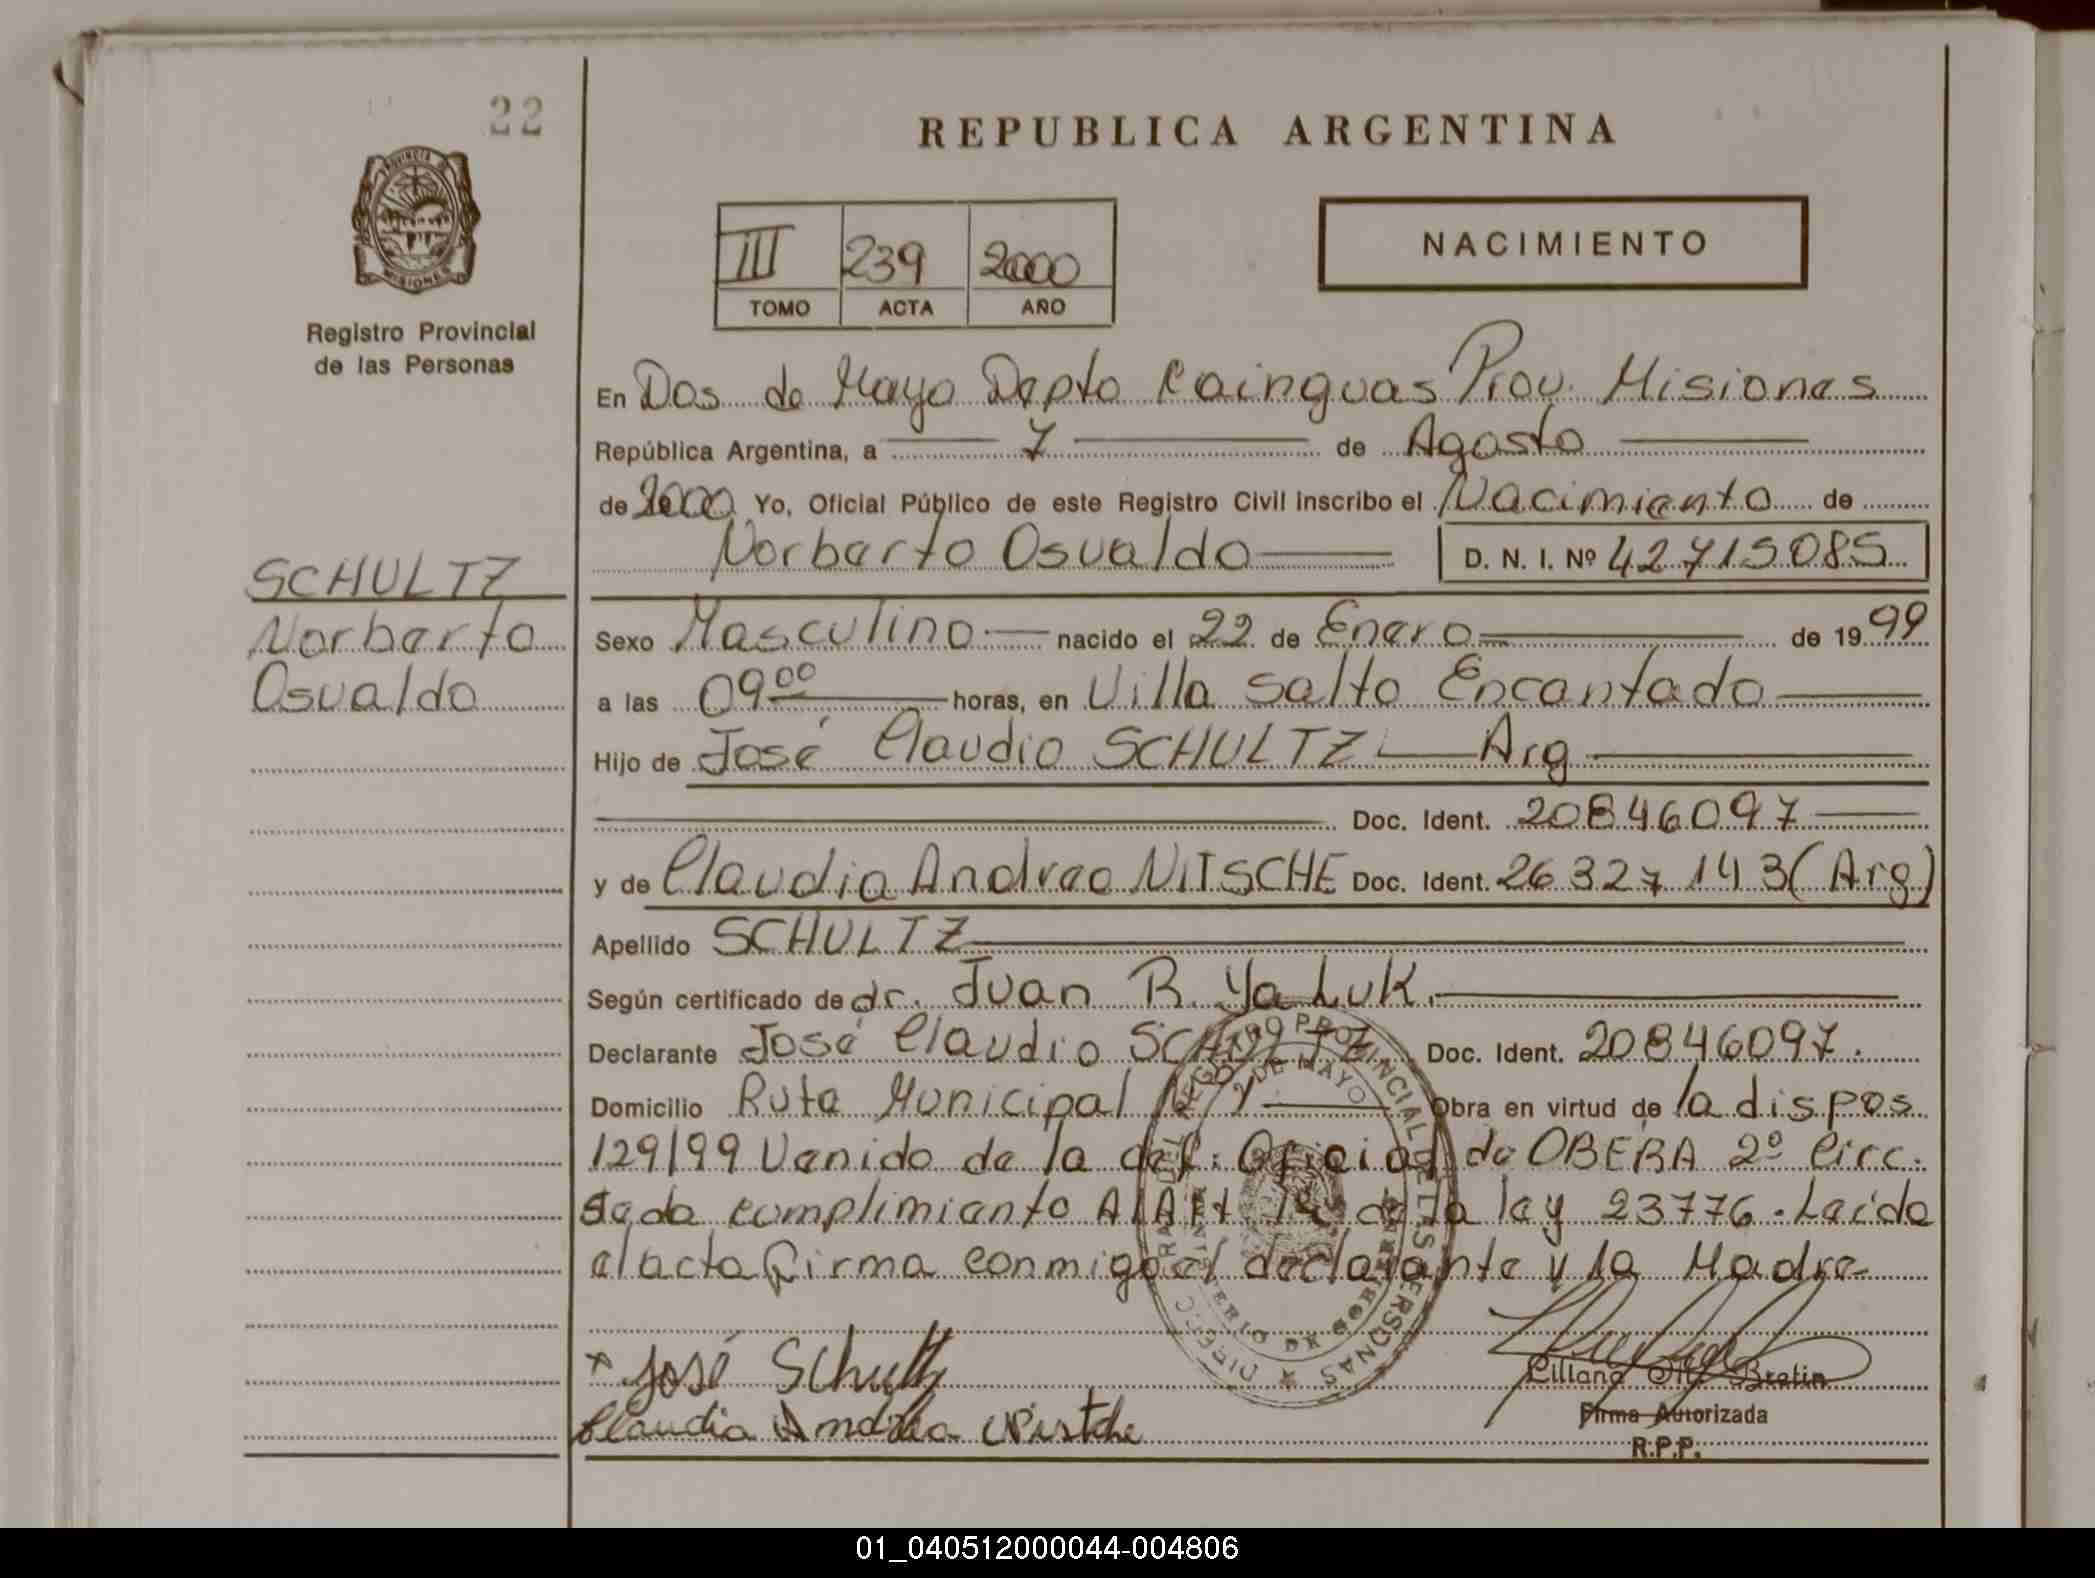 22
REPUBLICA ARGENTINA
PROVINCIA D
MISIONES
Registro Provincial
de las Personas
III 239 2000
TOMO ACTA AÑO
NACIMIENTO
En Dos de Mayo Depto Cainguas Prov. Misiones
República Argentina, a 7 de Agosto
de 2000 Yo, Oficial Público de este Registro Civil inscribo el Nacimiento de
Norberto Osvaldo D. N. I. Nº 42715085
SCHULTZ
Norberto
Osvaldo
Sexo Masculino nacido el 22 de Enero de 1999
a las 09 00 horas, en Villa Salto Encantado
Hijo de José Claudio SCHULTZ Arg
Doc. Ident. 20846097
y de Claudia Andrea NITSCHE Doc. Ident. 26327143 (Arg)
Apellido SCHULTZ
Según certificado de dr. Juan R. Ya Luk.
Declarante José Claudio SCHULTZ Doc. Ident. 20846097.
Domicilio Ruta Municipal Obra en virtud de la dispos
129/99 Venido de la def. Oficial de OBERA 2º Circ.
dado cumplimiento Al Art de la ley 23776. Leída
el acta firma conmigo el declarante y la Madre
REGISTRO PROVINCIAL DE LAS PERSONAS
2 DE MAYO
MINISTERIO DE GOBIERNO
José Schultz
Claudia Andrea Nistche
Liliana Bretin
Firma Autorizada
R.P.P.
01_040512000044-004806